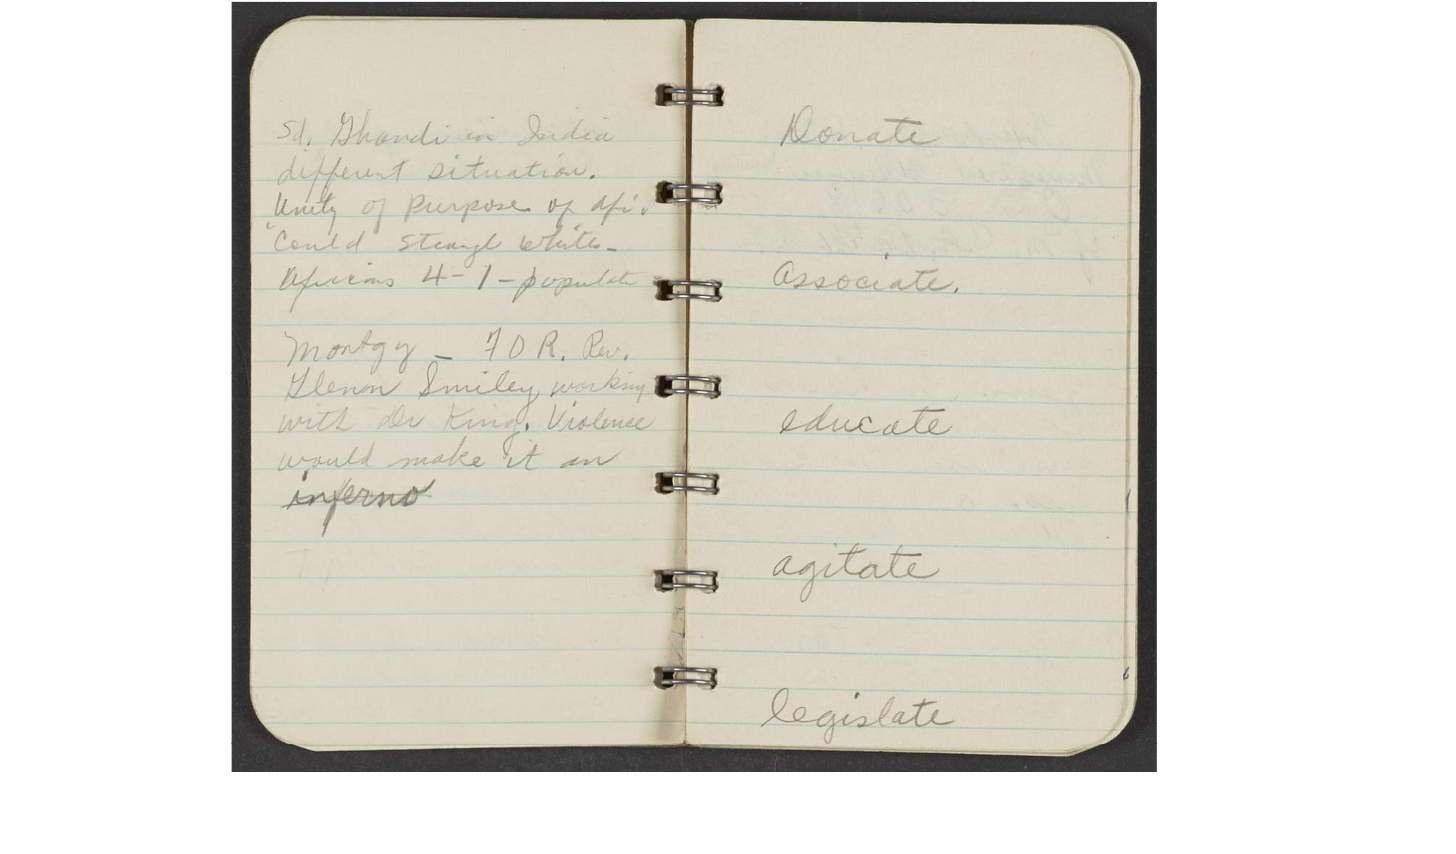 Sd. Ghandi in India
different situation.
Unity of Purpose of Afri.
Could strangl whites-
Africans 4-1-populate
Montgy - 7 O R. Rev.
Glenn Smiley working
with Dr King. Violence
would make it an
inferno
Donate
Associate.
educate
agitate
legislate